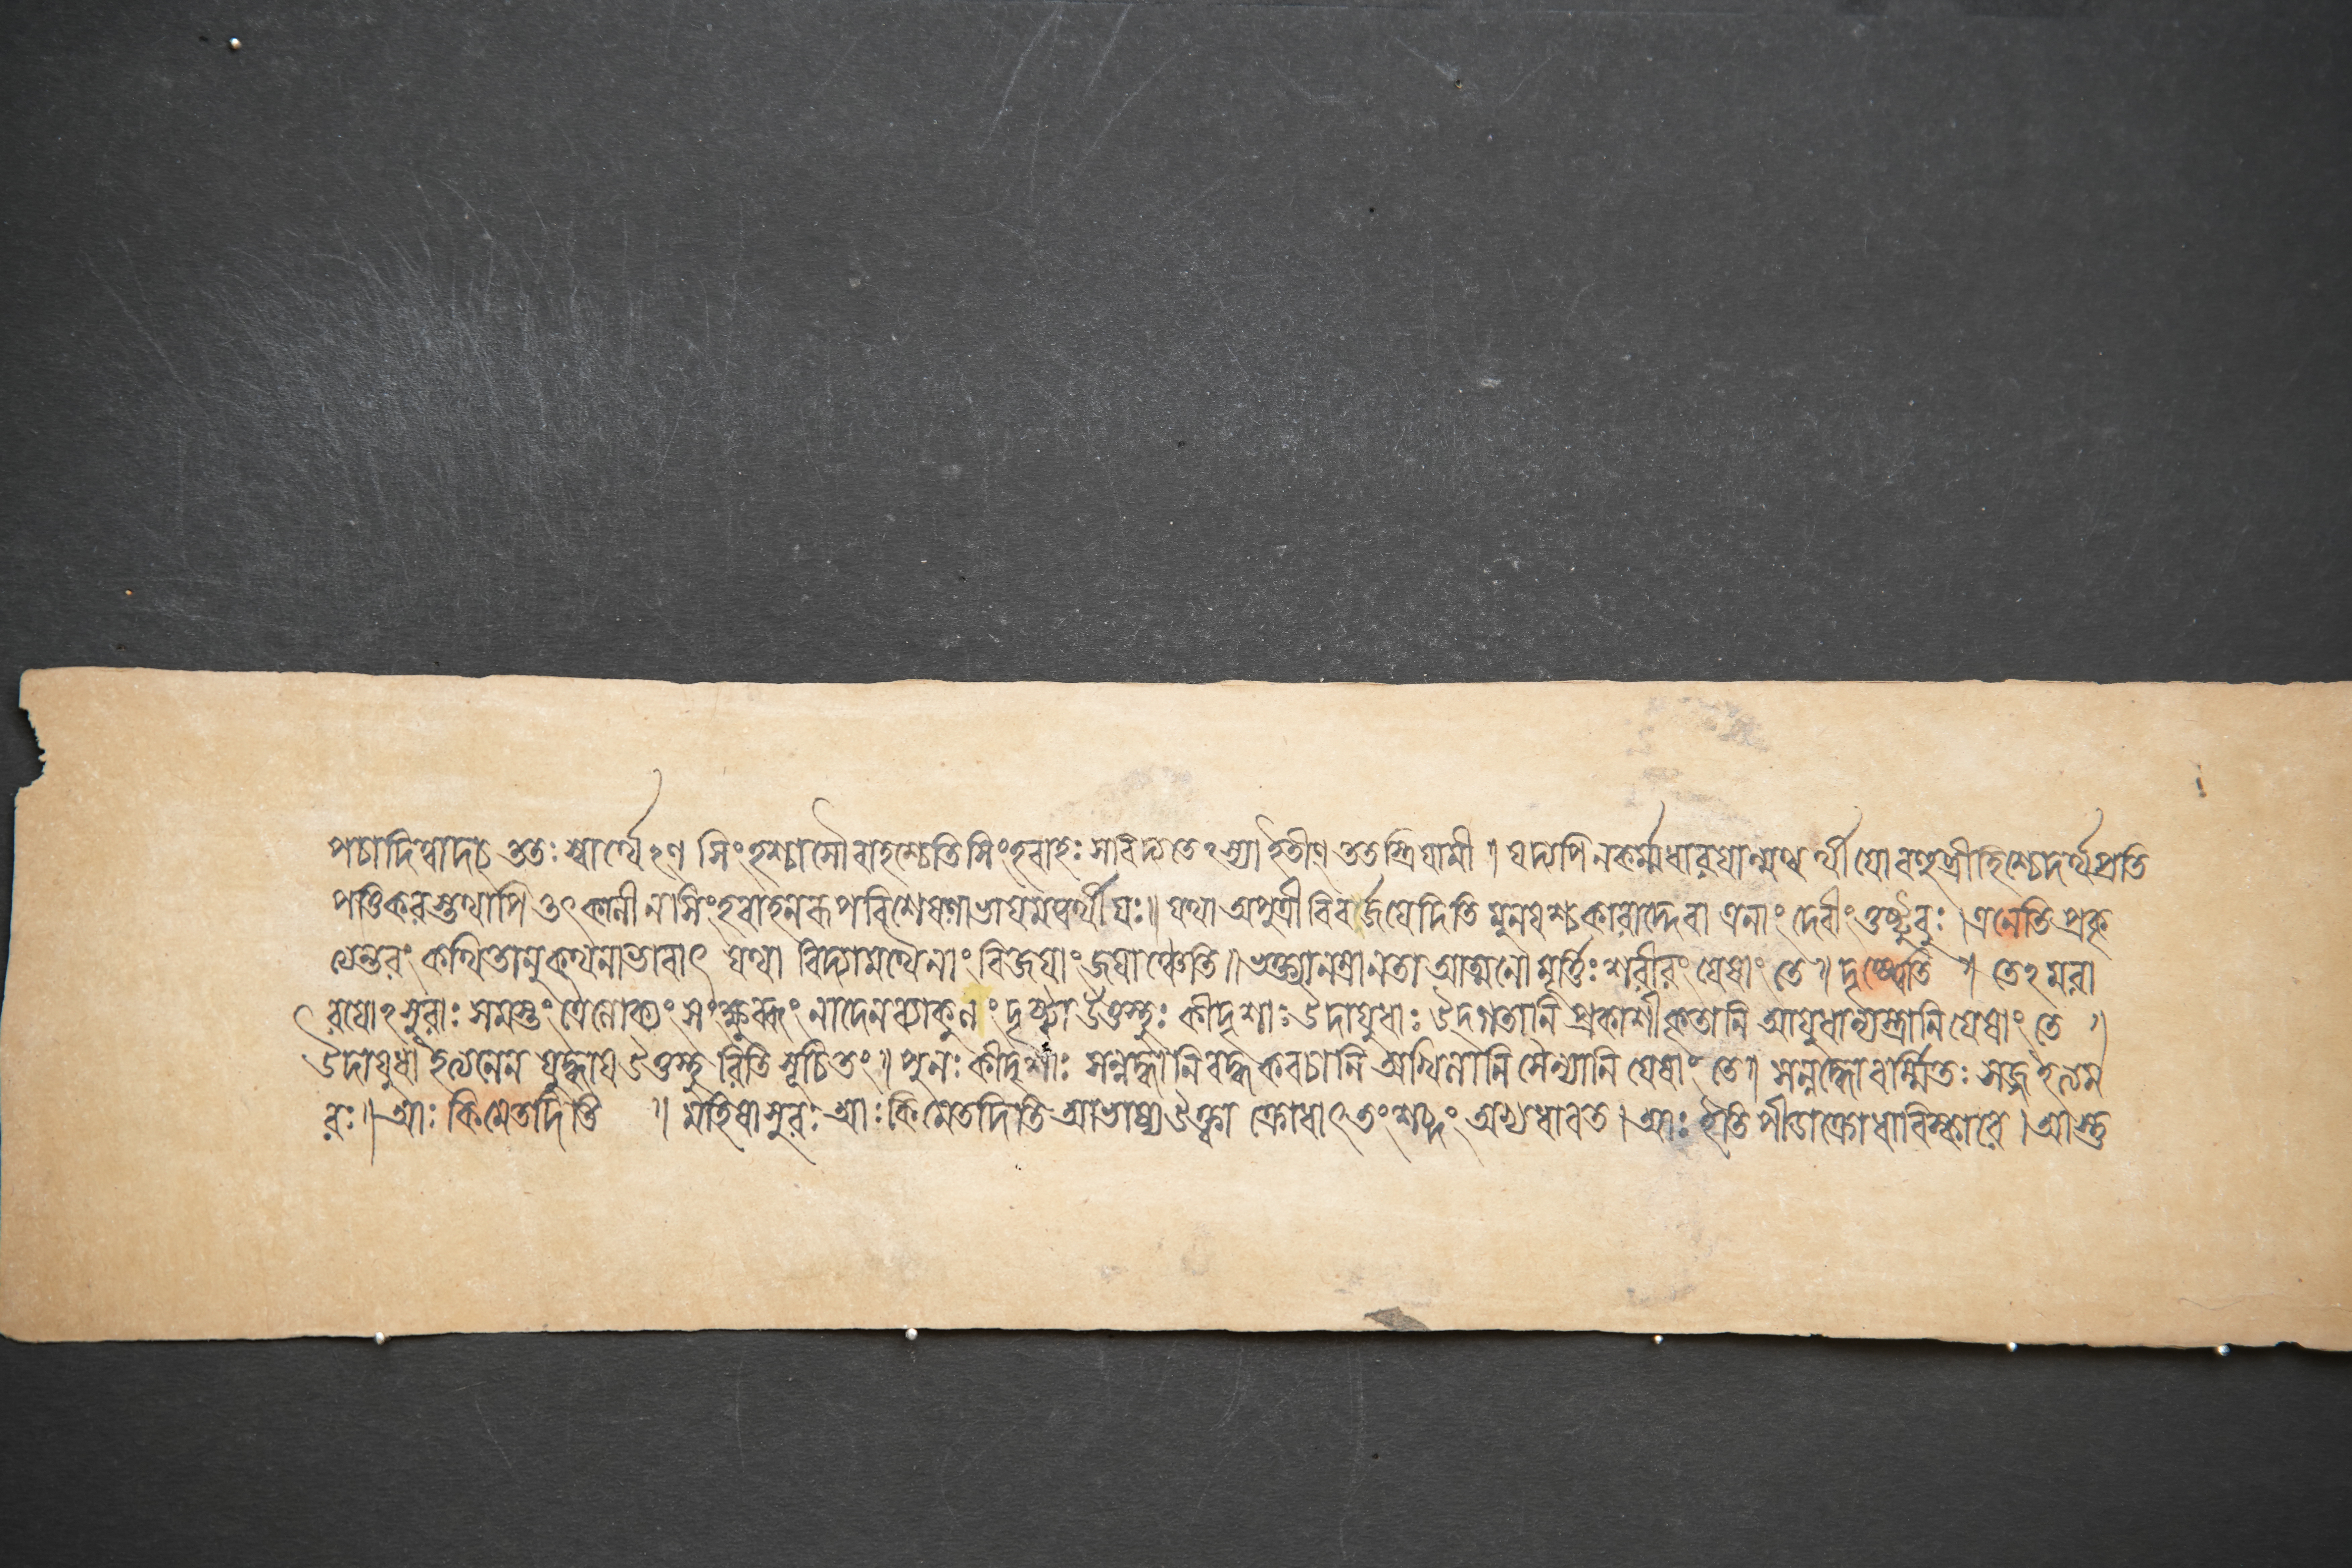 পচাদিত্বাদচ ততঃ স্বার্থেঽণ সিংহশ্চাসৌ বাহশ্চেতি সিংহবাহঃ সা বিদ্যতেঽস্যা ইতীণ ততস্ত্রিয়ামী । যদ্যপি ন কর্ম্মধারয়ান্মত্বর্থীয়ো বহুব্রীহিশ্চেদর্থপ্রতি
পত্তিকরস্তথাপি তৎকালীনা সিংহবাহনরূপবিশেষণাভায় মত্বর্থীয়ঃ॥ যথা অপুত্রী বিবর্জ্জয়েদিতি মুনয়শ্চকারাদ্দেবা এনাং দেবীং তুষ্টুবুঃ । এনেতি প্রকৃ
ত্যন্তরং কথিতানুকথনাভাবাৎ যথা বিদ্যামথৈনাং বিজয়াং জয়াঞ্চেতি॥ ভক্ত্যানম্রা নতা আত্মনো মূর্ত্তিঃ শরীরং যেষাং তে॥ দৃষ্ট্বেতি ॥ তেঽমরা
রয়োঽসুরাঃ সমস্তং ত্রৈলোক্যং সংক্ষুব্ধং নাদেন ব্যাকুলং দৃষ্ট্বা উত্তস্থুঃ কীদৃশাঃ উদায়ুধাঃ উদগতানি প্রকাশীকৃতানি আয়ুধান্যস্ত্রানি যেষাং তে ॥
উদায়ুধা ইত্যনেন যুদ্ধায় উত্তস্থুরিতি সূচিতং॥ পুনঃ কীদৃশাঃ সন্নদ্ধানি বদ্ধকবচানি অখিলানি সৈন্যানি যেষাং তে॥ সন্নদ্ধো বর্ম্মিতঃ সজ্জ ইত্যম
রঃ॥ আঃ কিমেতদিতি ॥ মহিষাসুরঃ আঃ কিমেতদিতি আভাষ্য উক্ত্বা ক্রোধাৎ তং শব্দং অভ্যধাবত । আঃ ইতি পীডাক্রোধাবিষ্কারে । আস্তু